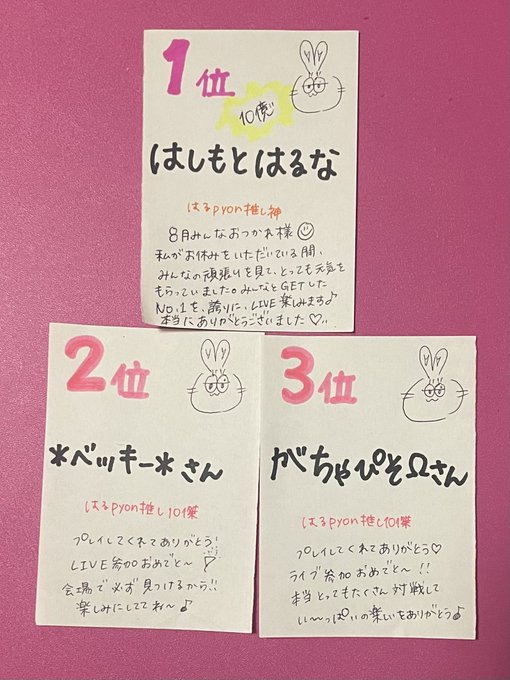 1位
10億
はしもとはるな
はるpyon推し神
8月みんなおつかれ様
私がお休みをいただいている間、
みんなの頑張りを見て、とっても元気を
もらっていました。みんなとGETした
No.1を、誇りに、LIVE楽しみます♪
本当にありがとうございました♡
2位
*ベッキー*さん
はるpyon推し101傑
プレイしてくれてありがとう!
LIVE参加おめでと〜
会場で必ず見つけるから!!
楽しみにしててね〜♪
3位
がちゃぴそΩさん
はるpyon推し101傑
プレイしてくれてありがとう♡
ライブ参加おめでと〜!!
本当とってもたくさん対戦して
い〜っぱいの楽しいをありがとう♪